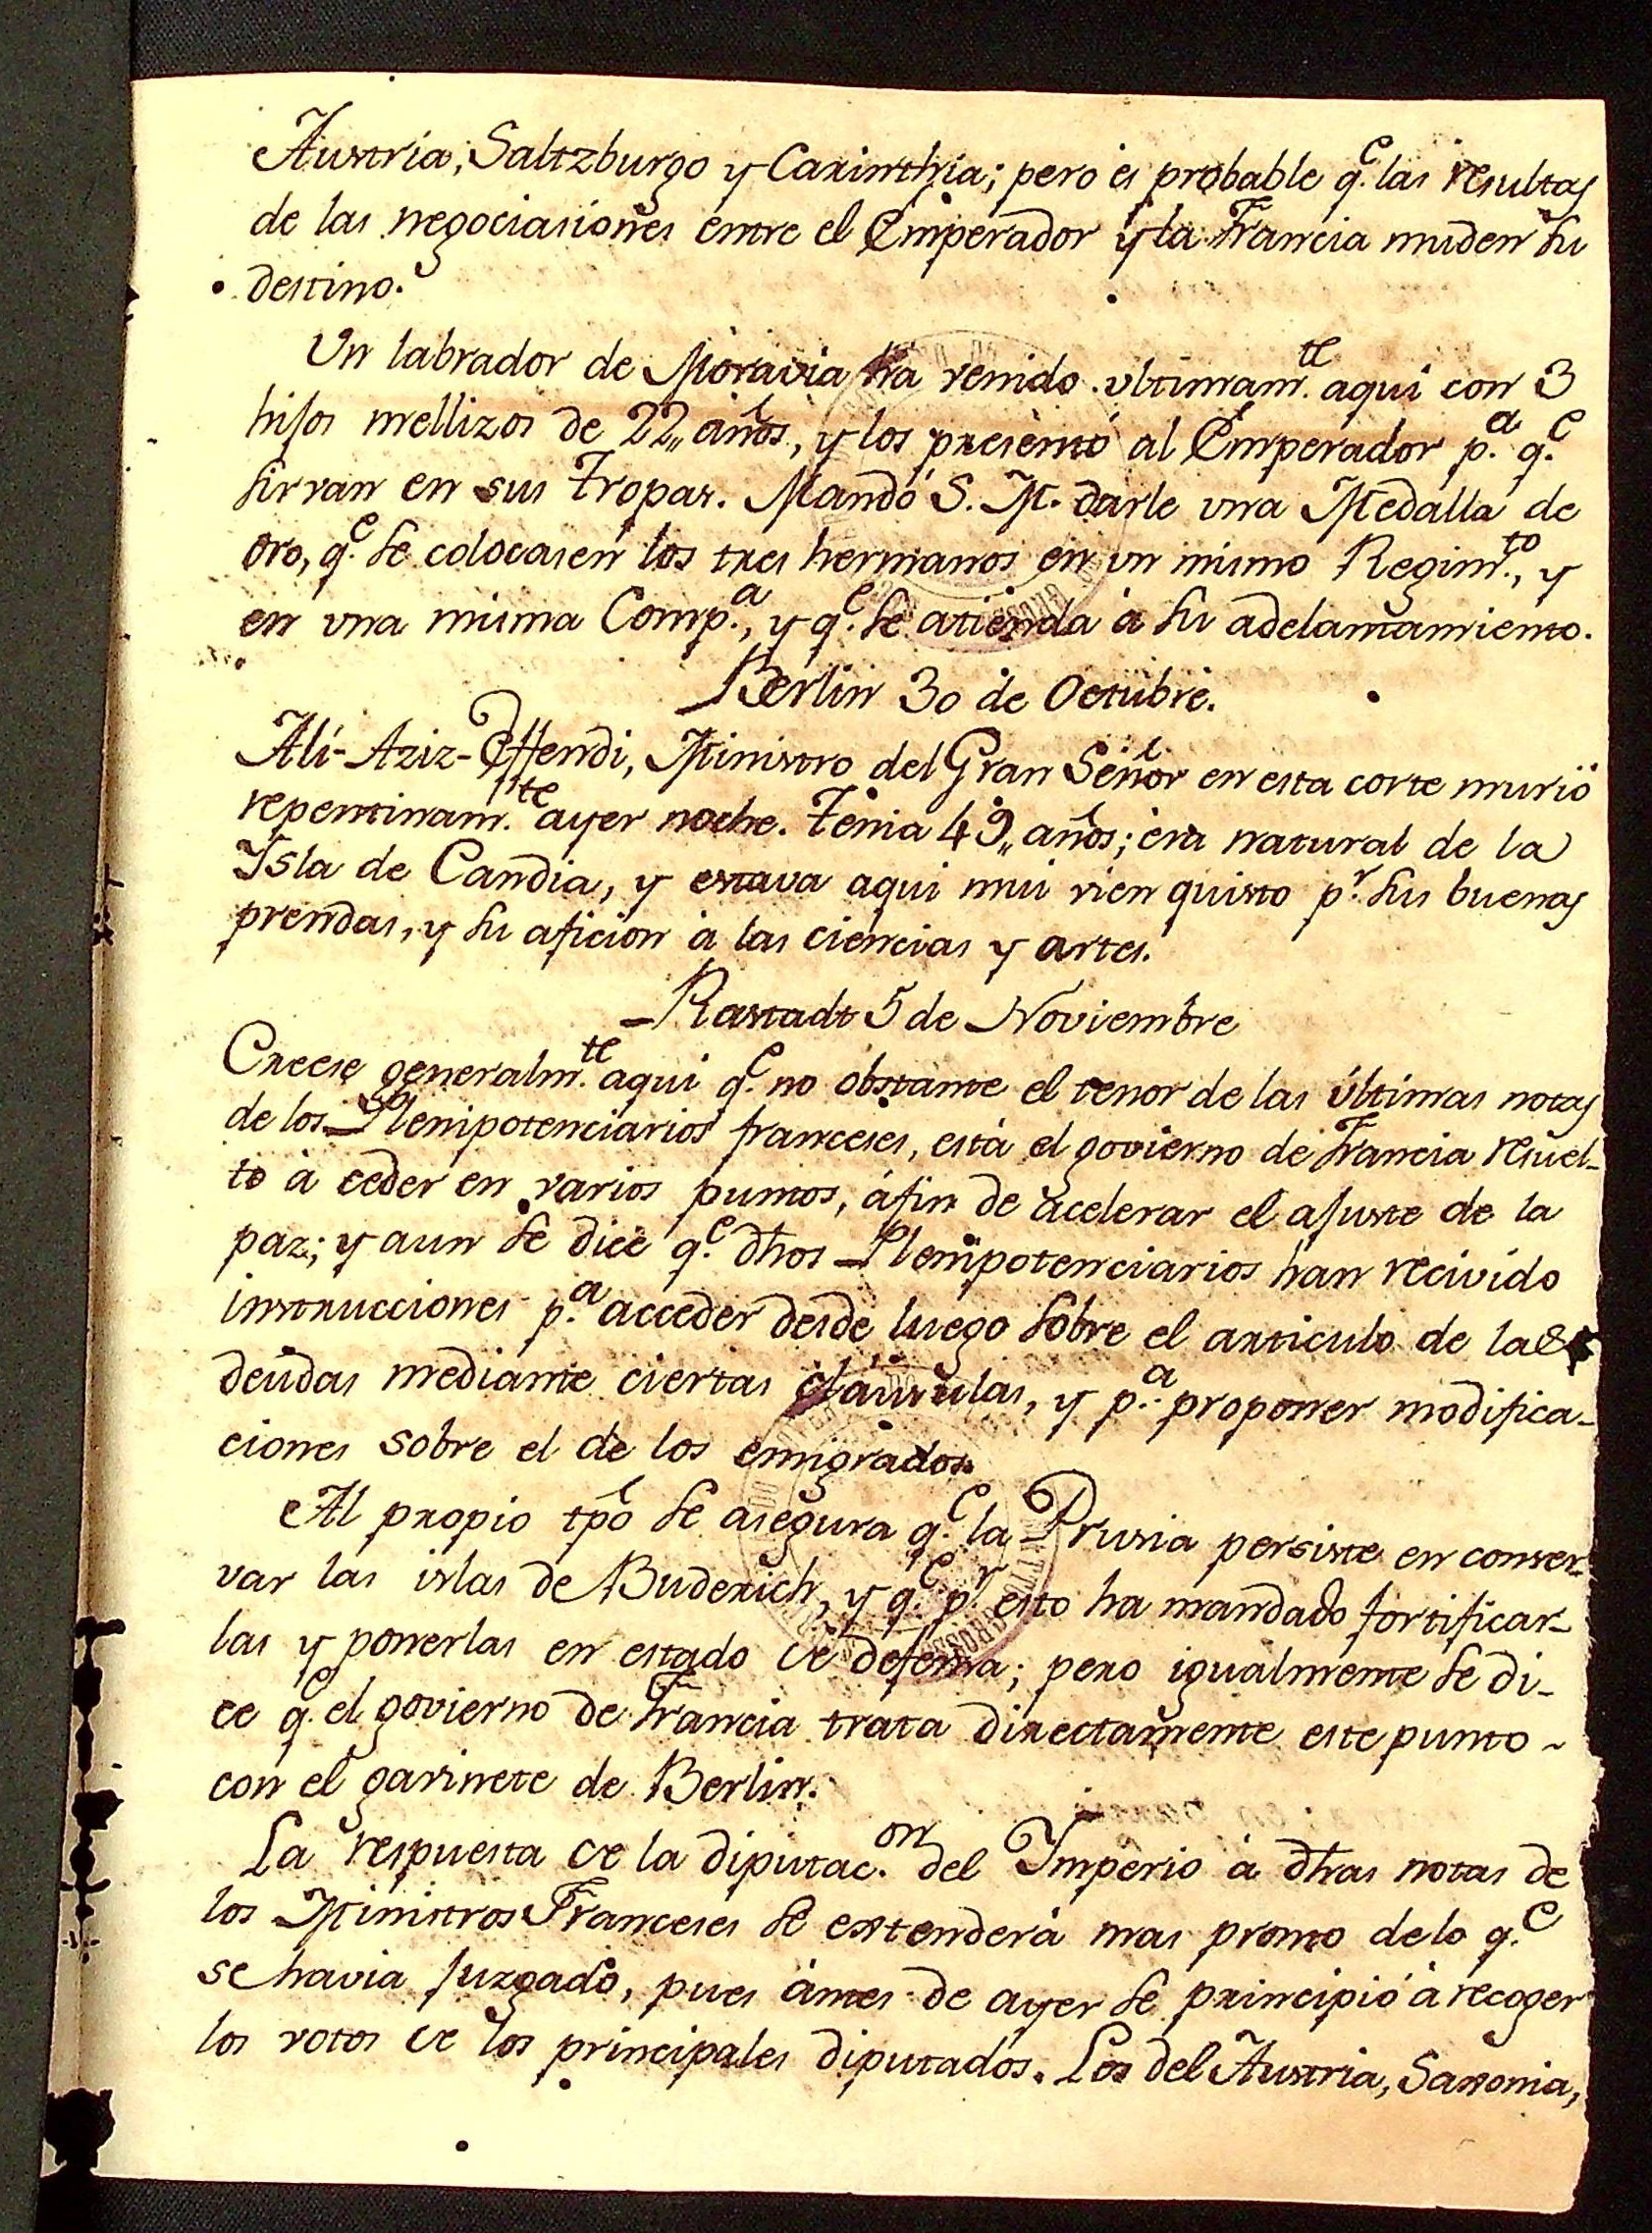 Austria, Saltzburgo y Carinthia; pero es probable q.e las resultas
de las negociasiones entre el Emperador y la Francia muden su
destino.
Un labrador de Moravia ha venido ultimam.te aqui con 3
hijos mellizos de 22,, años, y los presentó al Emperador p.a q.e
sirvan en sus tropas. Mandó S. M. darle una Medalla de
oro, q.e se colocasen los tres hermanos en un mismo Regim.to, y
en una misma Comp.a, y q.e se atienda à su adelantamiento.
Berlin 30 de Octubre.
Ali-Aziz-Effendi, Ministro del Gran Señor en esta corte murió
repentinam.te ayer noche. Tenia 49,, años; era natural de la
Isla de Candia, y estava aqui mui vien quisto p.r sus buenas
prendas, y su aficion à las ciencias y artes.
Rastadt 5 de Noviembre
Creese generalm.te aqui q.e no obstante el tenor de las últimas notas
de los Plenipotenciarios franceses, està el govierno de Francia resuel-
to à ceder en varios puntos, àfin de acelerar el ajuste de la
paz; y aun se dice q.e dhos Plenipotenciarios han recivido
instrucciones p.a acceder desde luego sobre el articulo de las
deudas mediante ciertas cláusulas, y p.a proponer modifica-
ciones sobre el de los emigrados.
Al propio tpo se asegura q.e la Prusia persiste en conser-
var las islas de Buderich, y q.e p.r esto ha mandado fortificar-
las y ponerlas en estado de defensa; pero igualmente se di-
ce q.e el govierno de Francia trata directamente este punto -
con el gavinete de Berlin.
La respuesta de la diputac.on del Imperio à dhas notas de
los Ministros Franceses se extenderà mas pronto delo q.e
se havia juzgado, pues àntes de ayer se principió à recoger
los votos de los principales diputados. Los del Austria, Saxonia,